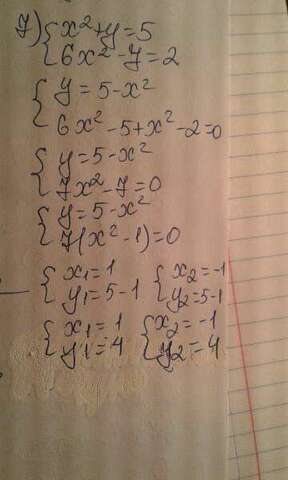 7) { x² + y = 5
6x² - y = 2
{ y = 5 - x²
6x² - 5 + x² - 2 = 0
{ y = 5 - x²
7x² - 7 = 0
{ y = 5 - x²
7(x² - 1) = 0
{ x₁ = 1 { x₂ = -1
y₁ = 5 - 1 y₂ = 5 - 1
{ x₁ = 1 { x₂ = -1
y₁ = 4 y₂ = 4